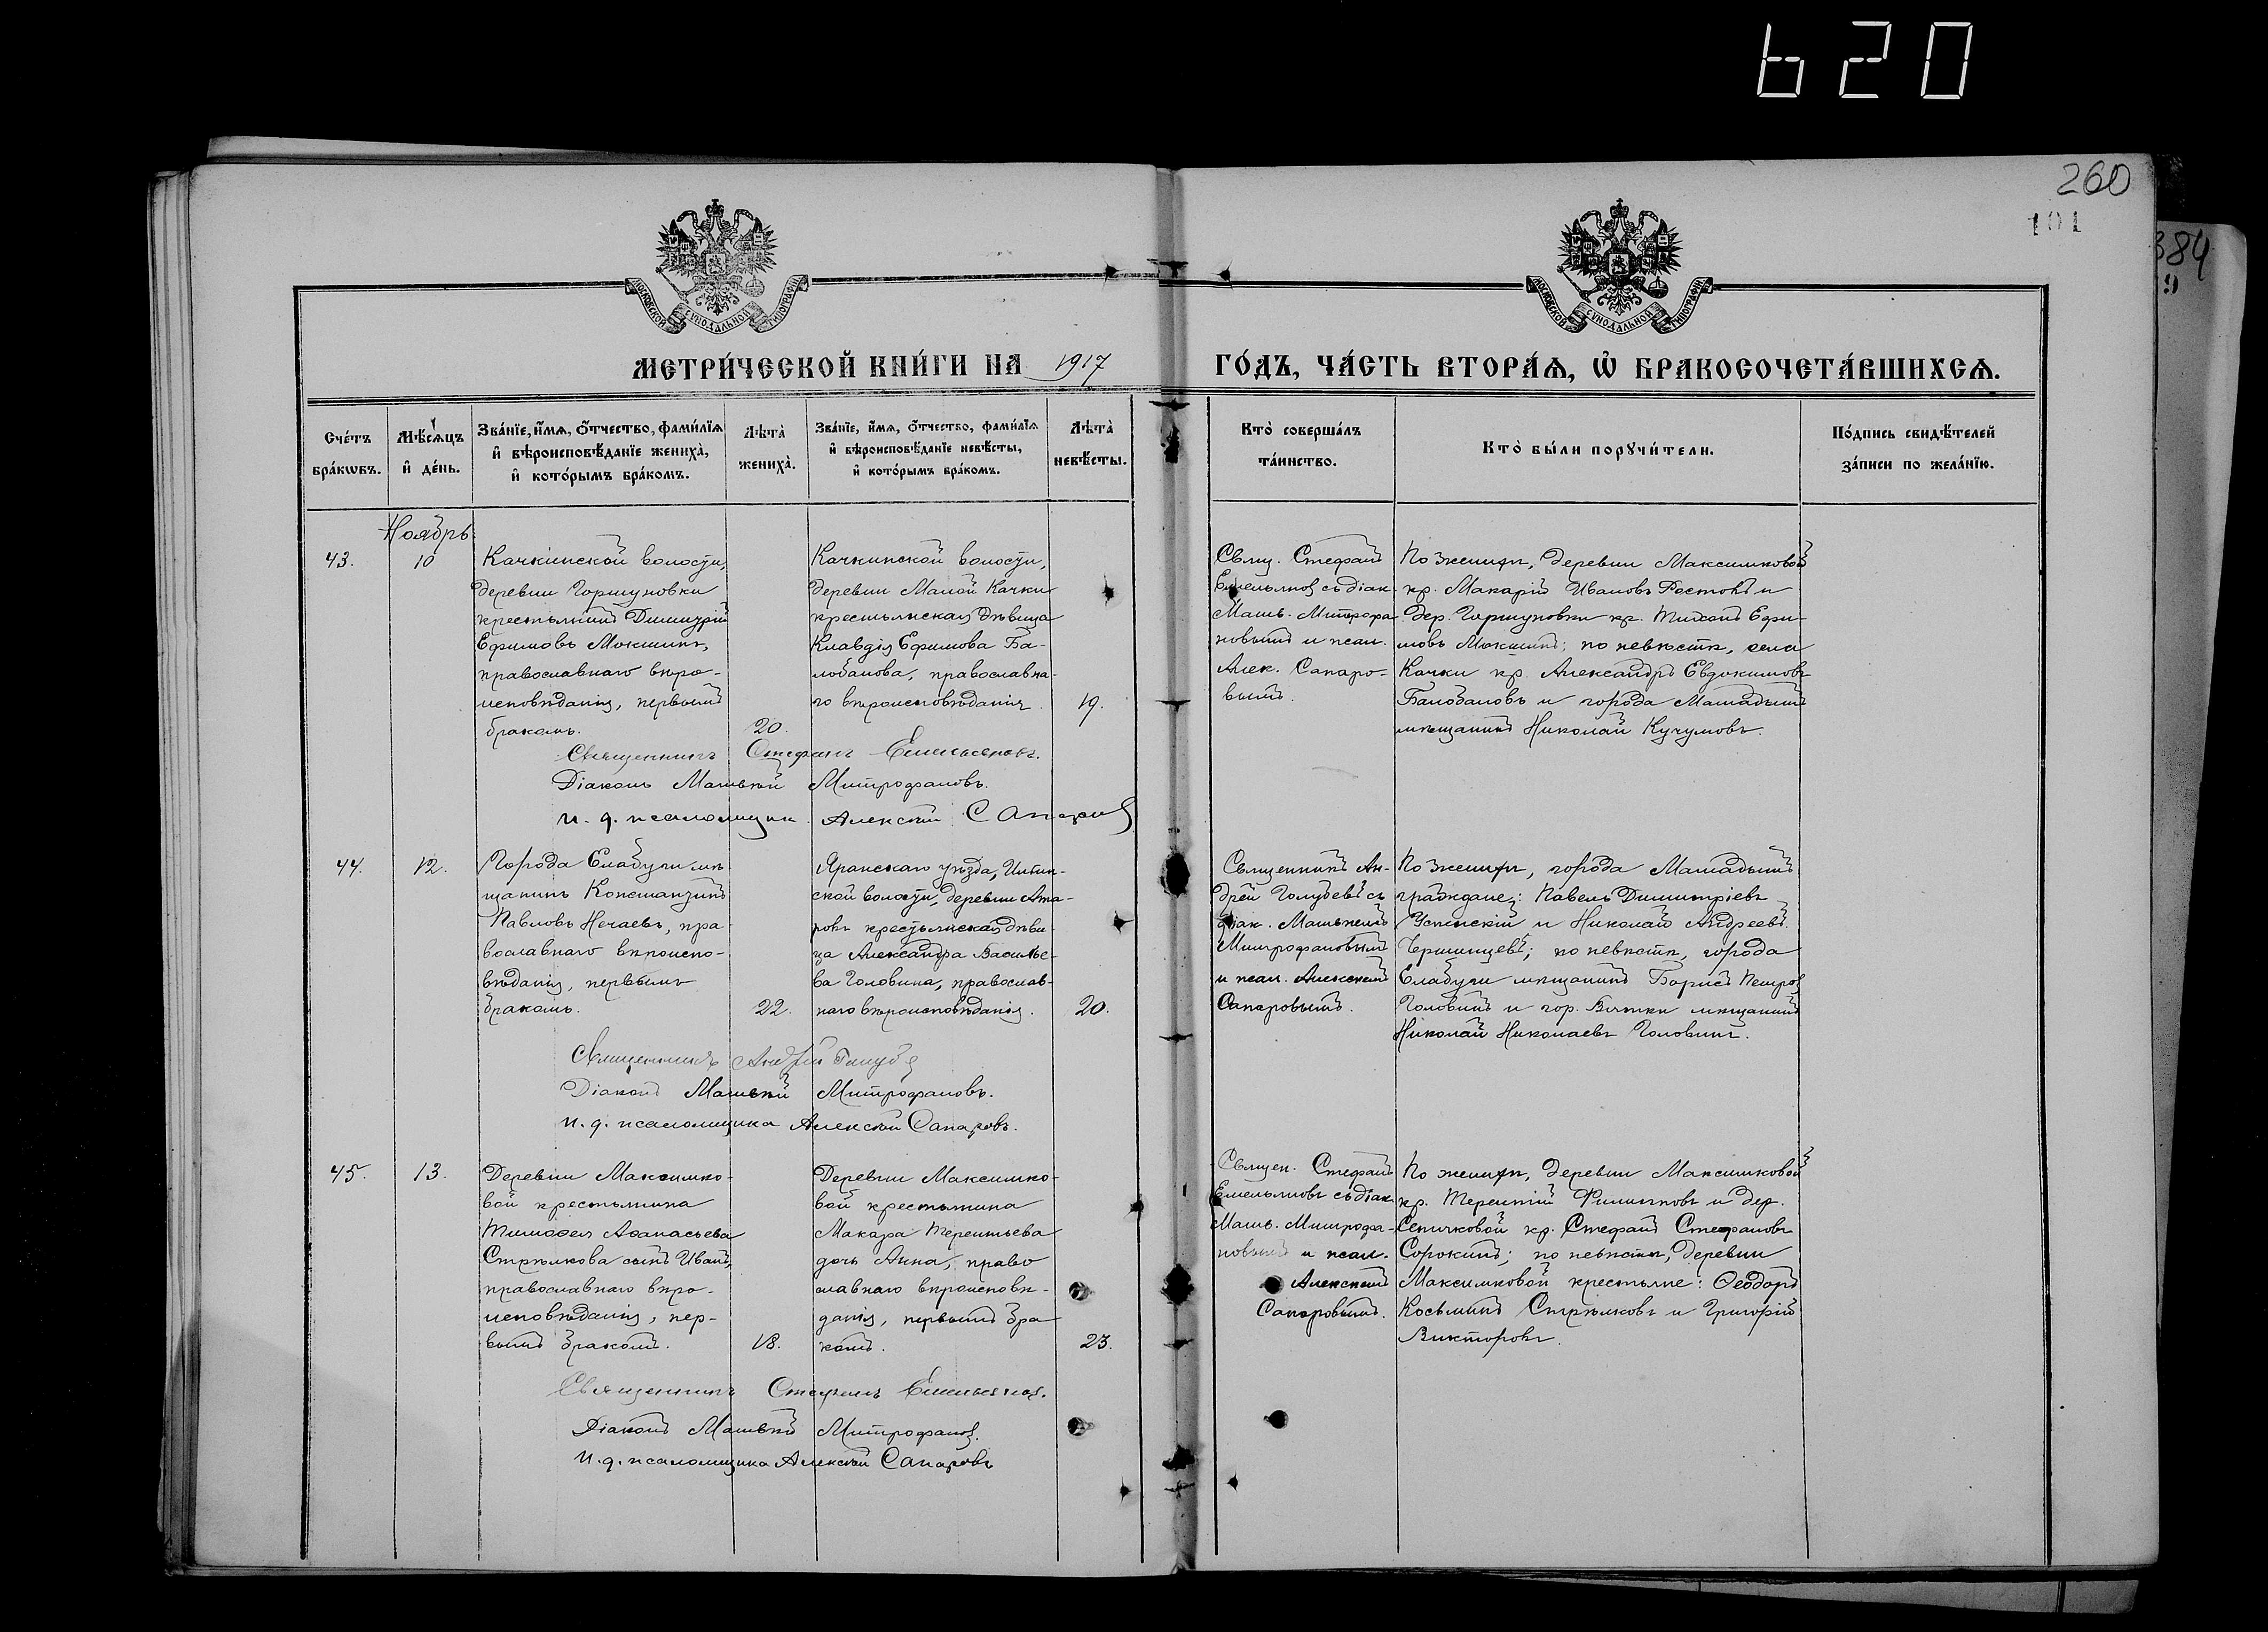 620
260
101
384
МОСКОВСКОЙ СѴНОДАЛЬНОЙ ТИПОГРАФІИ
МОСКОВСКОЙ СѴНОДАЛЬНОЙ ТИПОГРАФІИ
МЕТРИ́ЧЕСКОЙ КНИ́ГИ НА 1917
ГО́ДЪ, ЧА́СТЬ ВТОРА́Ѧ, Ѡ҆ БРАКОСОЧЕТА́ВШИХСѦ.
Сче́тъ бра́кѡвъ.
Мѣ́сѧцъ и҆ де́нь.
Зва́нїе, и҆́мѧ, ѻ҆́тчество, фами́лїѧ и҆ вѣроисповѣ́данїе жениха̀, и҆ кото́рымъ бра́комъ.
Лѣта̀ жениха̀.
Зва́нїе, и҆́мѧ, ѻ҆́тчество, фами́лїѧ и҆ вѣроисповѣ́данїе невѣ́сты, и҆ кото́рымъ бра́комъ.
Лѣта̀ невѣ́сты.
Кто̀ соверша́лъ та́инство.
Кто̀ бы́ли порꙋчи́тели.
По́дпись свидѣ́телей за́писи по жела́нїю.
Ноябрь
43.
10
Качкинской волости,
деревни Горшуновки
крестьянинъ Димитрій
Ефимовъ Мокшинъ,
православнаго вѣро-
исповѣданія, первымъ
бракомъ.
20.
Качкинской волости,
деревни Малой Качки
крестьянская дѣвица
Клавдія Ефимова Ба-
лобанова, православна-
го вѣроисповѣданія
19.
Свящ. Стефанъ
Емельяновъ съ діак.
Матѳ. Митрофа
новымъ и псал.
Алек. Сапаро-
вымъ.
По женихѣ, деревни Максимковой
кр. Макарій Ивановъ Ростовъ и
дер. Горшуновки кр. Тихонъ Ефи-
мовъ Мокшинъ; по невѣстѣ, села
Качки кр. Александръ Евдокимовъ
Балобановъ и города Мамадыша
мѣщанинъ Николай Кучумовъ.
Священникъ Стефанъ Емельяновъ.
Діаконъ Матвѣй Митрофановъ.
и. д. псаломщик. Алексѣй Сапаровъ
44.
12.
Города Елабуги мѣ
щанинъ Константинъ
Павловъ Нечаевъ, пра
вославнаго вѣроиспо-
вѣданія, первымъ
бракомъ.
22.
Яранскаго уѣзда,
ской волости, деревни Ата-
ровъ крестьянская дѣви-
ца Александра Василье-
ва Головина, православ-
наго вѣроисповѣданія.
20.
Священникъ Ан-
дрей Голубевъ съ
діак. Матвѣемъ
Митрофановымъ
и псал. Алексѣемъ
Сапаровымъ.
По женихѣ, города Мамадыша
граждане: Павелъ Димитріевъ
Успенскій и Николай Андреевъ
по невѣстѣ, города
Елабуги мѣщанинъ Борисъ Петровъ
Головинъ и гор. Вятки мѣщанинъ
Николай Николаевъ Головинъ.
Священникъ Андрей Голубевъ
Діаконъ Матвѣй Митрофановъ.
и. д. псаломщика Алексѣй Сапаровъ.
45.
13.
Деревни Максимко-
вой крестьянина
Тимоѳея Аѳанасьева
Стрѣлкова сынъ Иванъ,
православнаго вѣро-
исповѣданія, пер-
вымъ бракомъ.
18.
Деревни Максимко-
вой крестьянина
Макара Терентьева
дочь Анна, право
славнаго вѣроисповѣ-
данія, первымъ бра
комъ.
23.
Священ. Стефанъ
Емельяновъ съ діак.
Матѳ. Митрофа-
новымъ и псал.
Алексѣемъ
Сапаровымъ.
По женихѣ, деревни Максимковой
кр. Терентій Филипповъ и дер.
Сеничковой кр. Стефанъ Стефановъ
Сорокинъ; по невѣстѣ, деревни
Максимковой крестьяне: Ѳеодоръ
Косьминъ Стрѣлковъ и Григорій
Викторовъ.
Священникъ Стефанъ Емельяновъ.
Діаконъ Матвѣй Митрофановъ.
и. д. псаломщика Алексѣй Сапаровъ